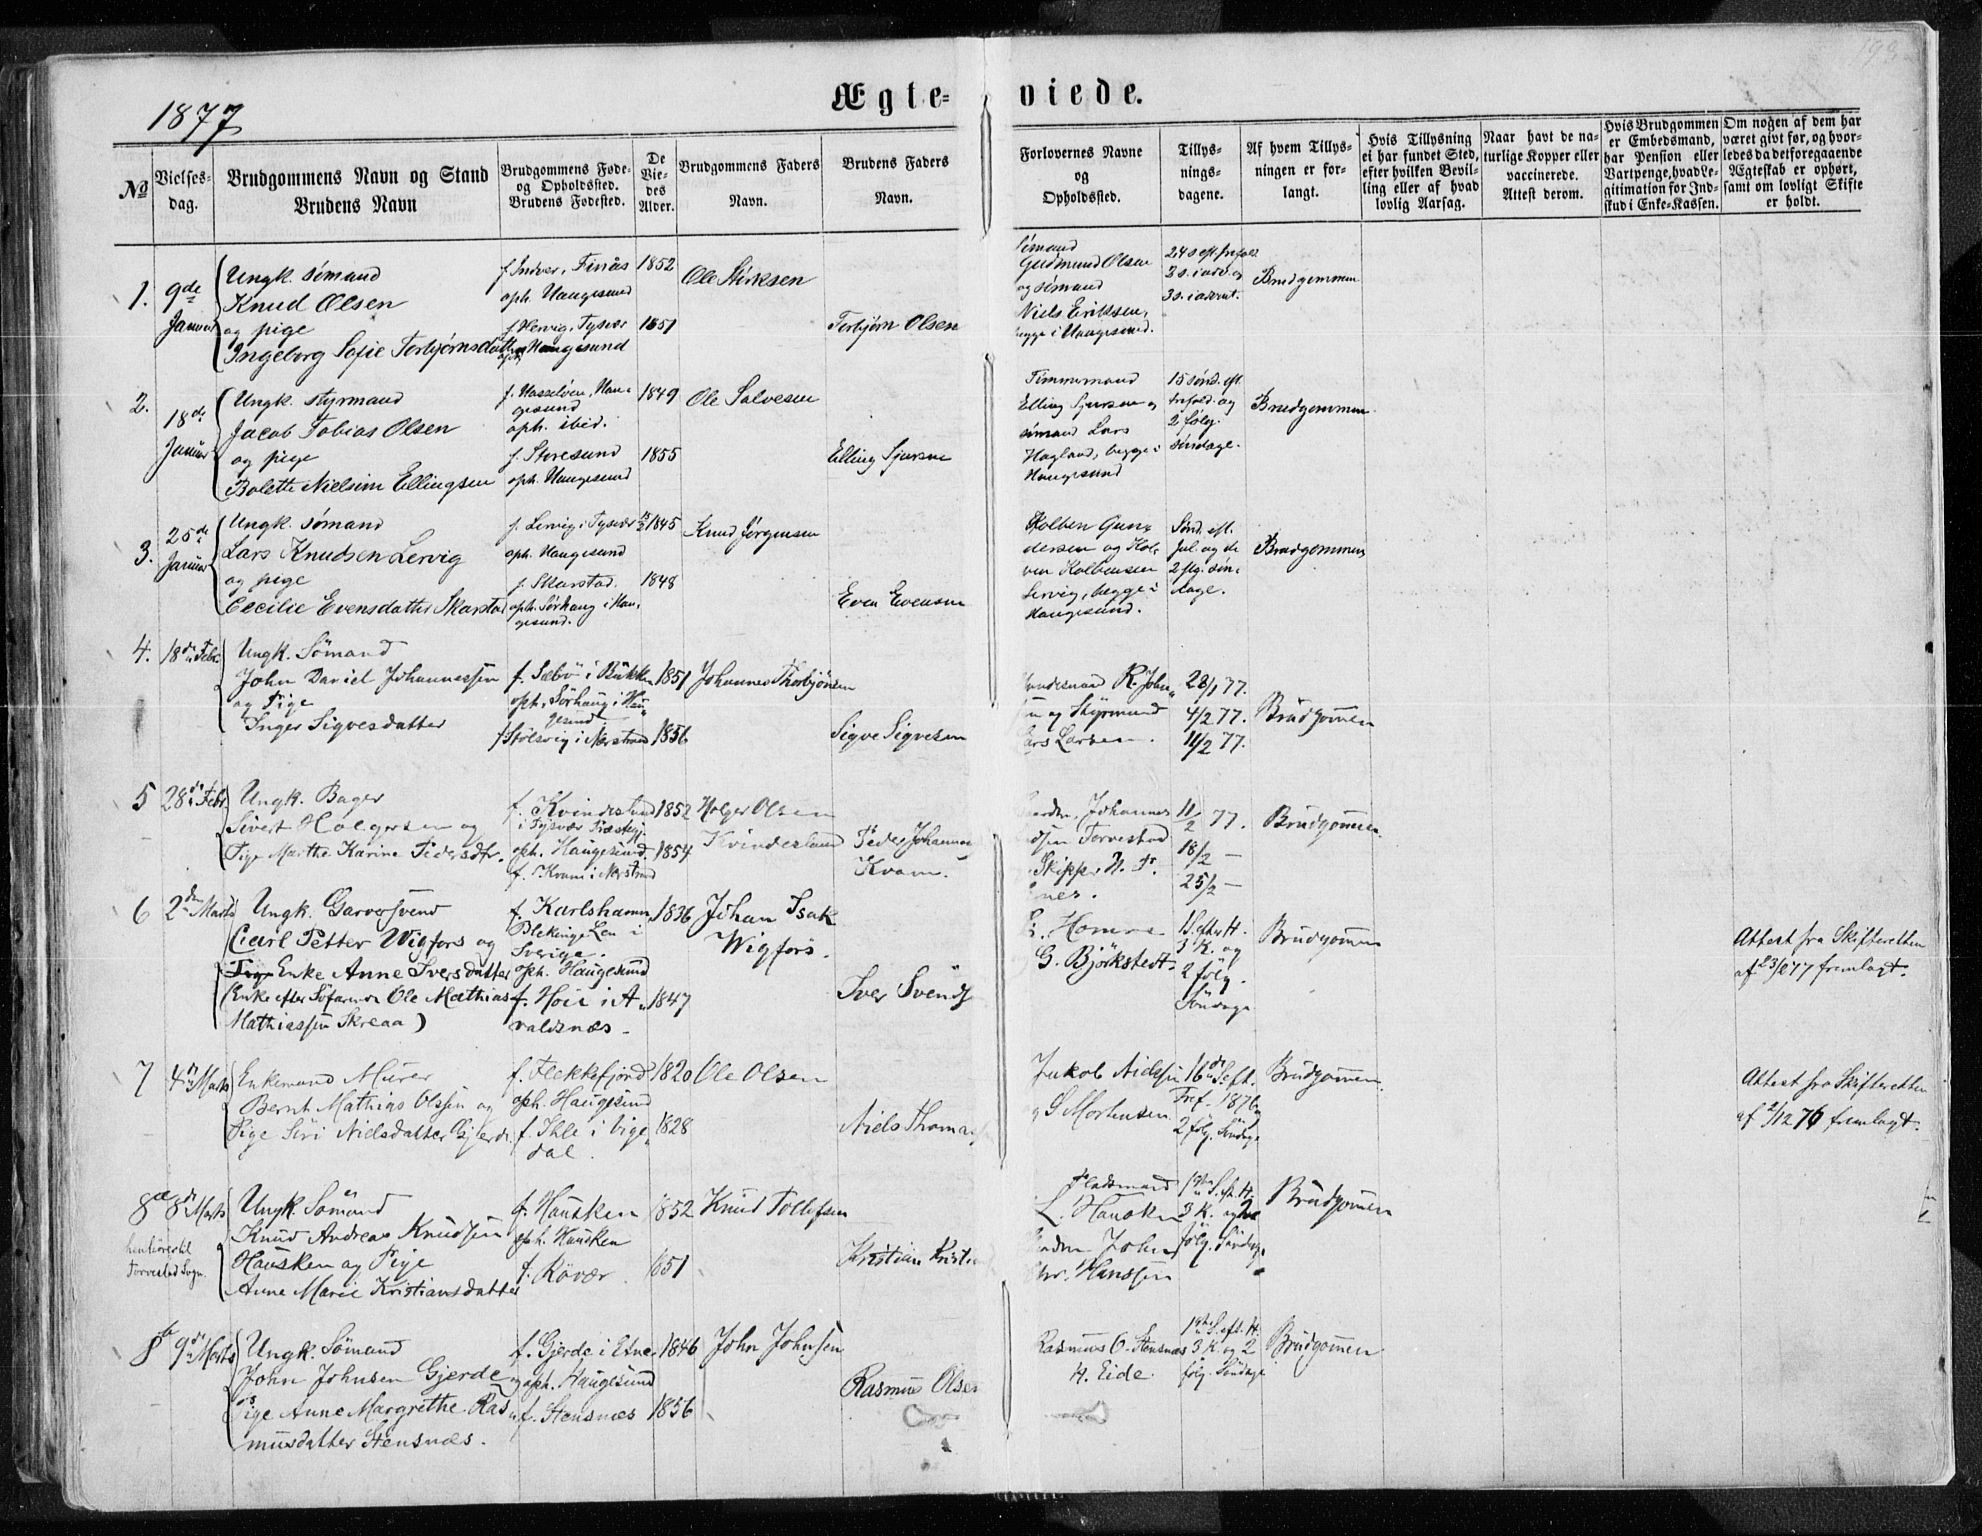 193
1877
Ægte-
viede.
No
Vielses-
dag.
Brudgommens Navn og Stand
Brudens Navn
Brudgommens Føde-
og Opholdssted.
Brudens Fødested.
De
Vie-
des
Alder.
Brudgommens Faders
Navn.
Brudens Faders
Navn.
Forlovernes Navne
og
Opholdssted.
Tillys-
nings-
dagene.
Af hvem Tillys-
ningen er for-
langt.
Hvis Tillysning
ei har fundet Sted,
efter hvilken Bevil-
ling eller af hvad
lovlig Aarsag.
Naar havt de na-
turlige Kopper eller
vaccinerede.
Attest derom.
Hvis Brudgommen
er Embedsmand,
har Pension eller
Vartpenge, hvad Le-
gitimation for Ind-
skud i Enke-Kassen.
Om nogen af dem har
været givt før, og hvor-
ledes da det foregaaende
Ægteskab er ophørt,
samt om lovligt Skifte
er holdt.
1.
9de
Januar
Ungk. sømand
Knud Olsen
og pige
Ingeborg Sofie Torbjørnsdatter
f. Indver, Finås
oph. Haugesund
f. Hervig, Tysvær
oph. Haugesund
1852
1851
Ole
Torbjørn Olsen
Sømand
Gudmund Olsen
og sømand
Niels Eriksen,
begge i Haugesund.
24 s. eft. trefold.
3 s. i adv. og
3 s. i advent.
Brudgommen
2.
18de
Januar
Ungk. styrmand
Jacob Tobias Olsen
og pige
Bolette Nielsine Ellingsen
f. Hasseløen, Hau-
gesund
oph. ibid.
f. Storesund
oph. Haugesund
1849
1855
Ole Salvesen
Elling Sjursen
Tømmermand
Elling Sjursen og
sømand Lars
Hagland, begge i
Haugesund
15 sønd. eft.
trefold. og
2 følg.
søndage.
Brudgommen
3.
25de
Januar
Ungk. sømand
Lars Knudsen Lervig
og pige
Cecilie Evensdatter Skarstad
f. Lervig i Tysvær
oph. Haugesund
f. Skarstad.
oph. Sørhaug i Hau-
gesund.
1845
1848
Knud Jørgensen
Even Evensen
Kolben Gun-
dersen og Kol-
ven Kolbensen
Lervig, begge i
Haugesund.
Sønd. eft.
Jul og de
2 flg. søn-
dage.
Brudgommen
4.
18de Febr.
Ungk. Sömand
John Daniel Johannessen
og Pige
Inger Sigvesdatter
f. Sæbö i Bukken
oph. Sörhaug i Hau-
gesund
f. Stölsvig i Nerstrand
1851
1856
Johannes Thorbjörnsen
Sigve Sigvesen
Handelsmand R. John-
sen og Styrmand
Lars Larsen.
28/1 77.
4/2 77.
11/2 77.
Brudgommen
5
28de Febr.
Ungk. Bager
Sivert Holgersen og
Pige Marthe Karine Pedersdtr.
f. Kvindesland
i Tysvær Præstegj.
oph. Haugesund
f. Kvam i Nerstrand
1852
1854
Holger Olsen
Kvindesland
Peder Johannes
Kvam.
Johannes
Torvestad
Skipper N. P.
11/2 77.
18/2 –
25/2 –
Brudgommen
6
2den Marts
Ungk. Garversvend
Carl Petter Wigfors og
Pige Enke Anne Iversdatter
(Enke efter Söfarmor Ole Mathias
Mathiassen Skreaa)
f. Karlshamn
Blekinge Len i
Sverige.
oph. Haugesund
f. Hoie i A-
valdsnæs –
1836
1847
Johan Isak
Wigfors.
Iver Svends
Homme
G. Björkstedt.
1 S. efter H.
3 K. og
2 følg.
Söndage
Brudgommen
Attest fra Skifteretten
af 23/2 77 fremlagt.
7
4de Marts
Enkemand Murer
Bernt Mathias Olssen og
Pige Siri Nielsdatter Gjerde
f. Flekkefjord
oph. Haugesund
f. Ihle i Vige-
dal.
1820
1828
Ole Olsen
Niels Thomas
Jakob Nielsen
og S Mortensen
16de S. eft.
Tref. 1876 og
2 følg. Söndage
Brudgommen.
Attest fra Skifteretten
af 2/12 76 fremlagt.
8a
8de Marts
henhörer til
Torvestad Sogn.
Ungk. Sömand
Knud Andreas Knudsen
Hausken og Pige
Anne Marie Kristiansdatter
f. Hausken
oph. Hausken
f. Rövær
1852
1851
Knud Tollefsen
Kristian Kristen
Pladsmand
L. Hausken
Gaardm. John
Chr. Hanssen
1ste S. eft. H.
3 K. og 2
følg. Söndage
Brudgommen
8b
9de Marts
Ungk. Sömand
John Johnsen Gjerde og
Pige Anne Margrethe Ras-
musdatter Stensnæs.
f. Gjerde i Etne
oph. Haugesund
f. Stensnæs
1846
1856
John Johnsen
Rasmus Olsen
Rasmus O. Stensnæs
H. Eide
1ste S. eft. H.
3 K. og 2
følg. Söndage
Brudgommen